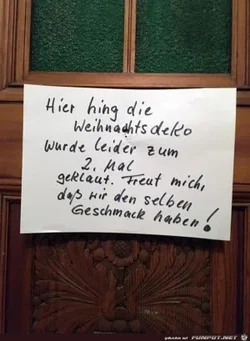 Hier hing die
Weihnachtsdeko
wurde leider zum
2. Mal
geklaut. Freut mich,
daß wir den selben
Geschmack haben!
FUNPOT.NET